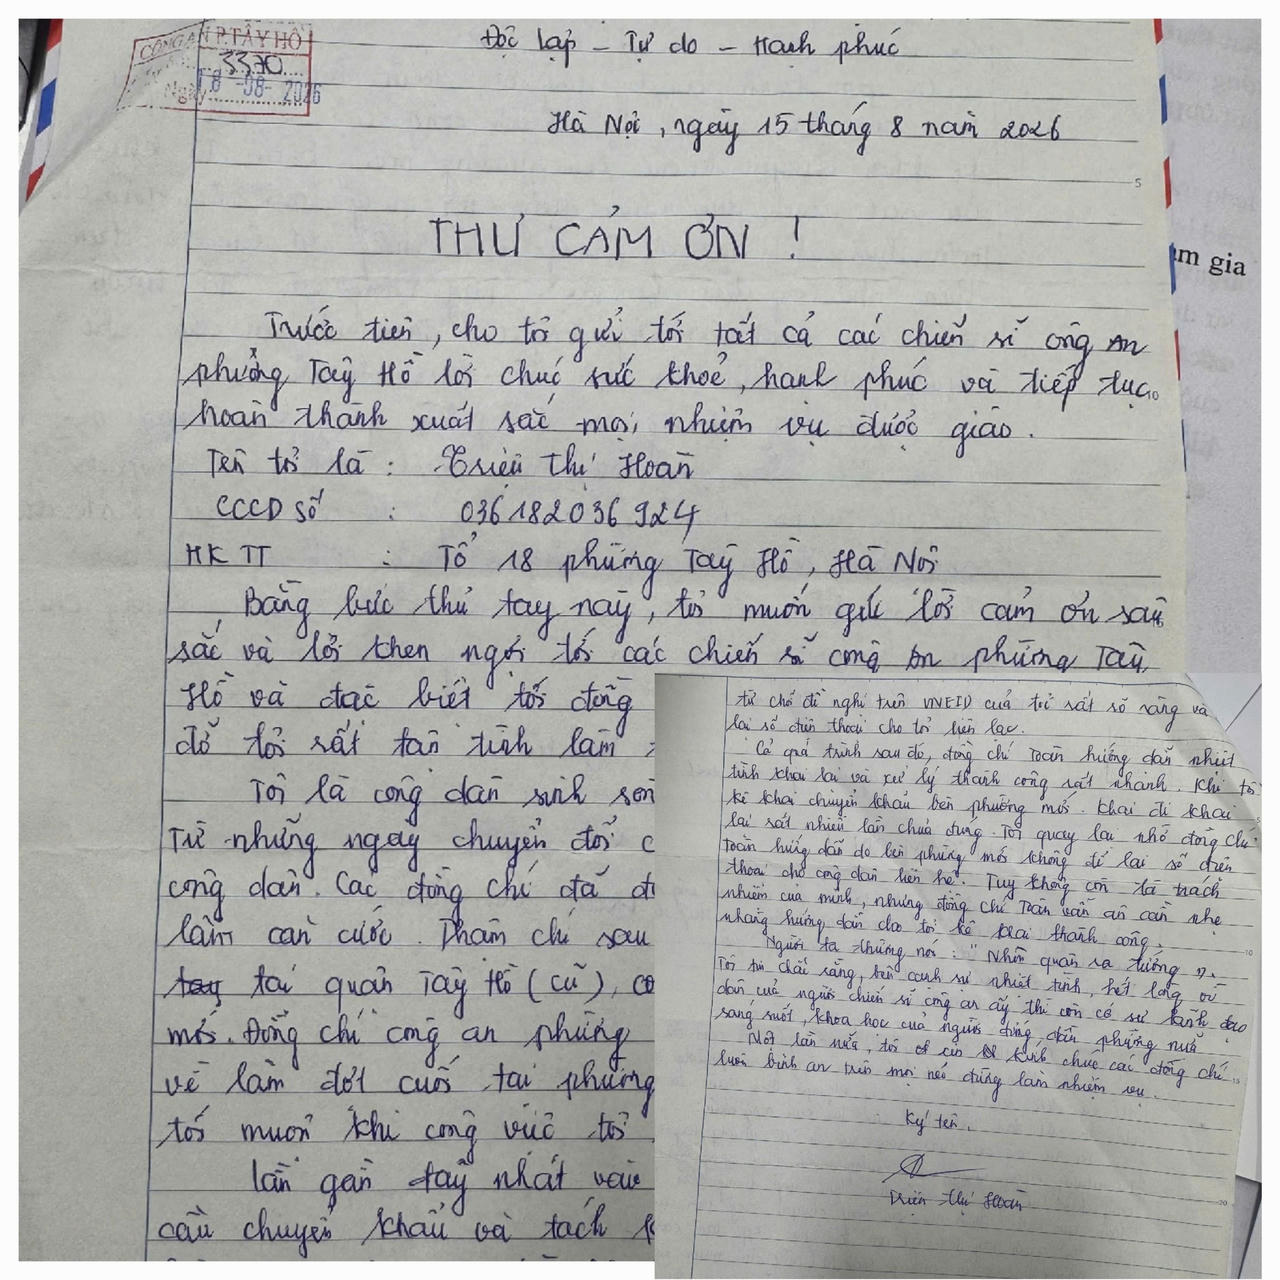 CÔNG AN P.TÂY HỒ
3370
Ngày 18 -08- 2026
Độc lập - Tự do - Hạnh phúc
Hà Nội, ngày 15 tháng 8 năm 2026
THƯ CẢM ƠN !
Trước tiên, cho tôi gửi tới tất cả các chiến sĩ công an
phường Tây Hồ lời chúc sức khoẻ, hạnh phúc và tiếp tục
hoàn thành xuất sắc mọi nhiệm vụ được giao.
Tên tôi là : Triệu Thị Hoàn
CCCD số : 036182036924
HKTT : Tổ 18 phường Tây Hồ, Hà Nội
Bằng bức thư tay này, tôi muốn gửi lời cảm ơn sâu
sắc và lời khen ngợi tới các chiến sĩ công an phường Tây
Hồ và đặc biệt tới đồng
đỡ tôi rất tận tình làm
Tôi là công dân sinh sốn
Từ những ngày chuyển đổi c
công dân. Các đồng chí đã
làm căn cước. Thậm chí sau
tại quận Tây Hồ (cũ),
mới. Đồng chí công an phường
về làm đợt cuối tại phường
tối muộn khi công việc tôi
Lần gần đây nhất
cầu chuyển khẩu và tách
từ chối đề nghị trên VNEID của tôi rất rõ ràng và
lại số điện thoại cho tôi liên lạc.
Cả quá trình sau đó, đồng chí Toàn hướng dẫn nhiệt
tình khai lại và xử lý thành công rất nhanh. Khi tôi
kê khai chuyển khẩu bên phường mới. Khai đi khai
lại rất nhiều lần chưa đúng. Tôi quay lại nhờ đồng chí
Toàn hướng dẫn do bên phường mới không để lại số điện
thoại cho công dân liên hệ. Tuy không còn là trách
nhiệm của mình, nhưng đồng chí Toàn vẫn ân cần nhẹ
nhàng hướng dẫn cho tôi kê khai thành công.
Người ta thường nói : " Nhìn quân ra tướng ".
Tôi tin chắc rằng, bên cạnh sự nhiệt tình, hết lòng vì
dân của người chiến sĩ công an ấy thì còn có sự lãnh đạo
sáng suốt, khoa học của người đứng đầu phường nữa
Một lần nữa, tôi xin kính chúc các đồng chí
luôn bình an trên mọi nẻo đường làm nhiệm vụ.
Ký tên.
Triệu Thị Hoàn
am gia